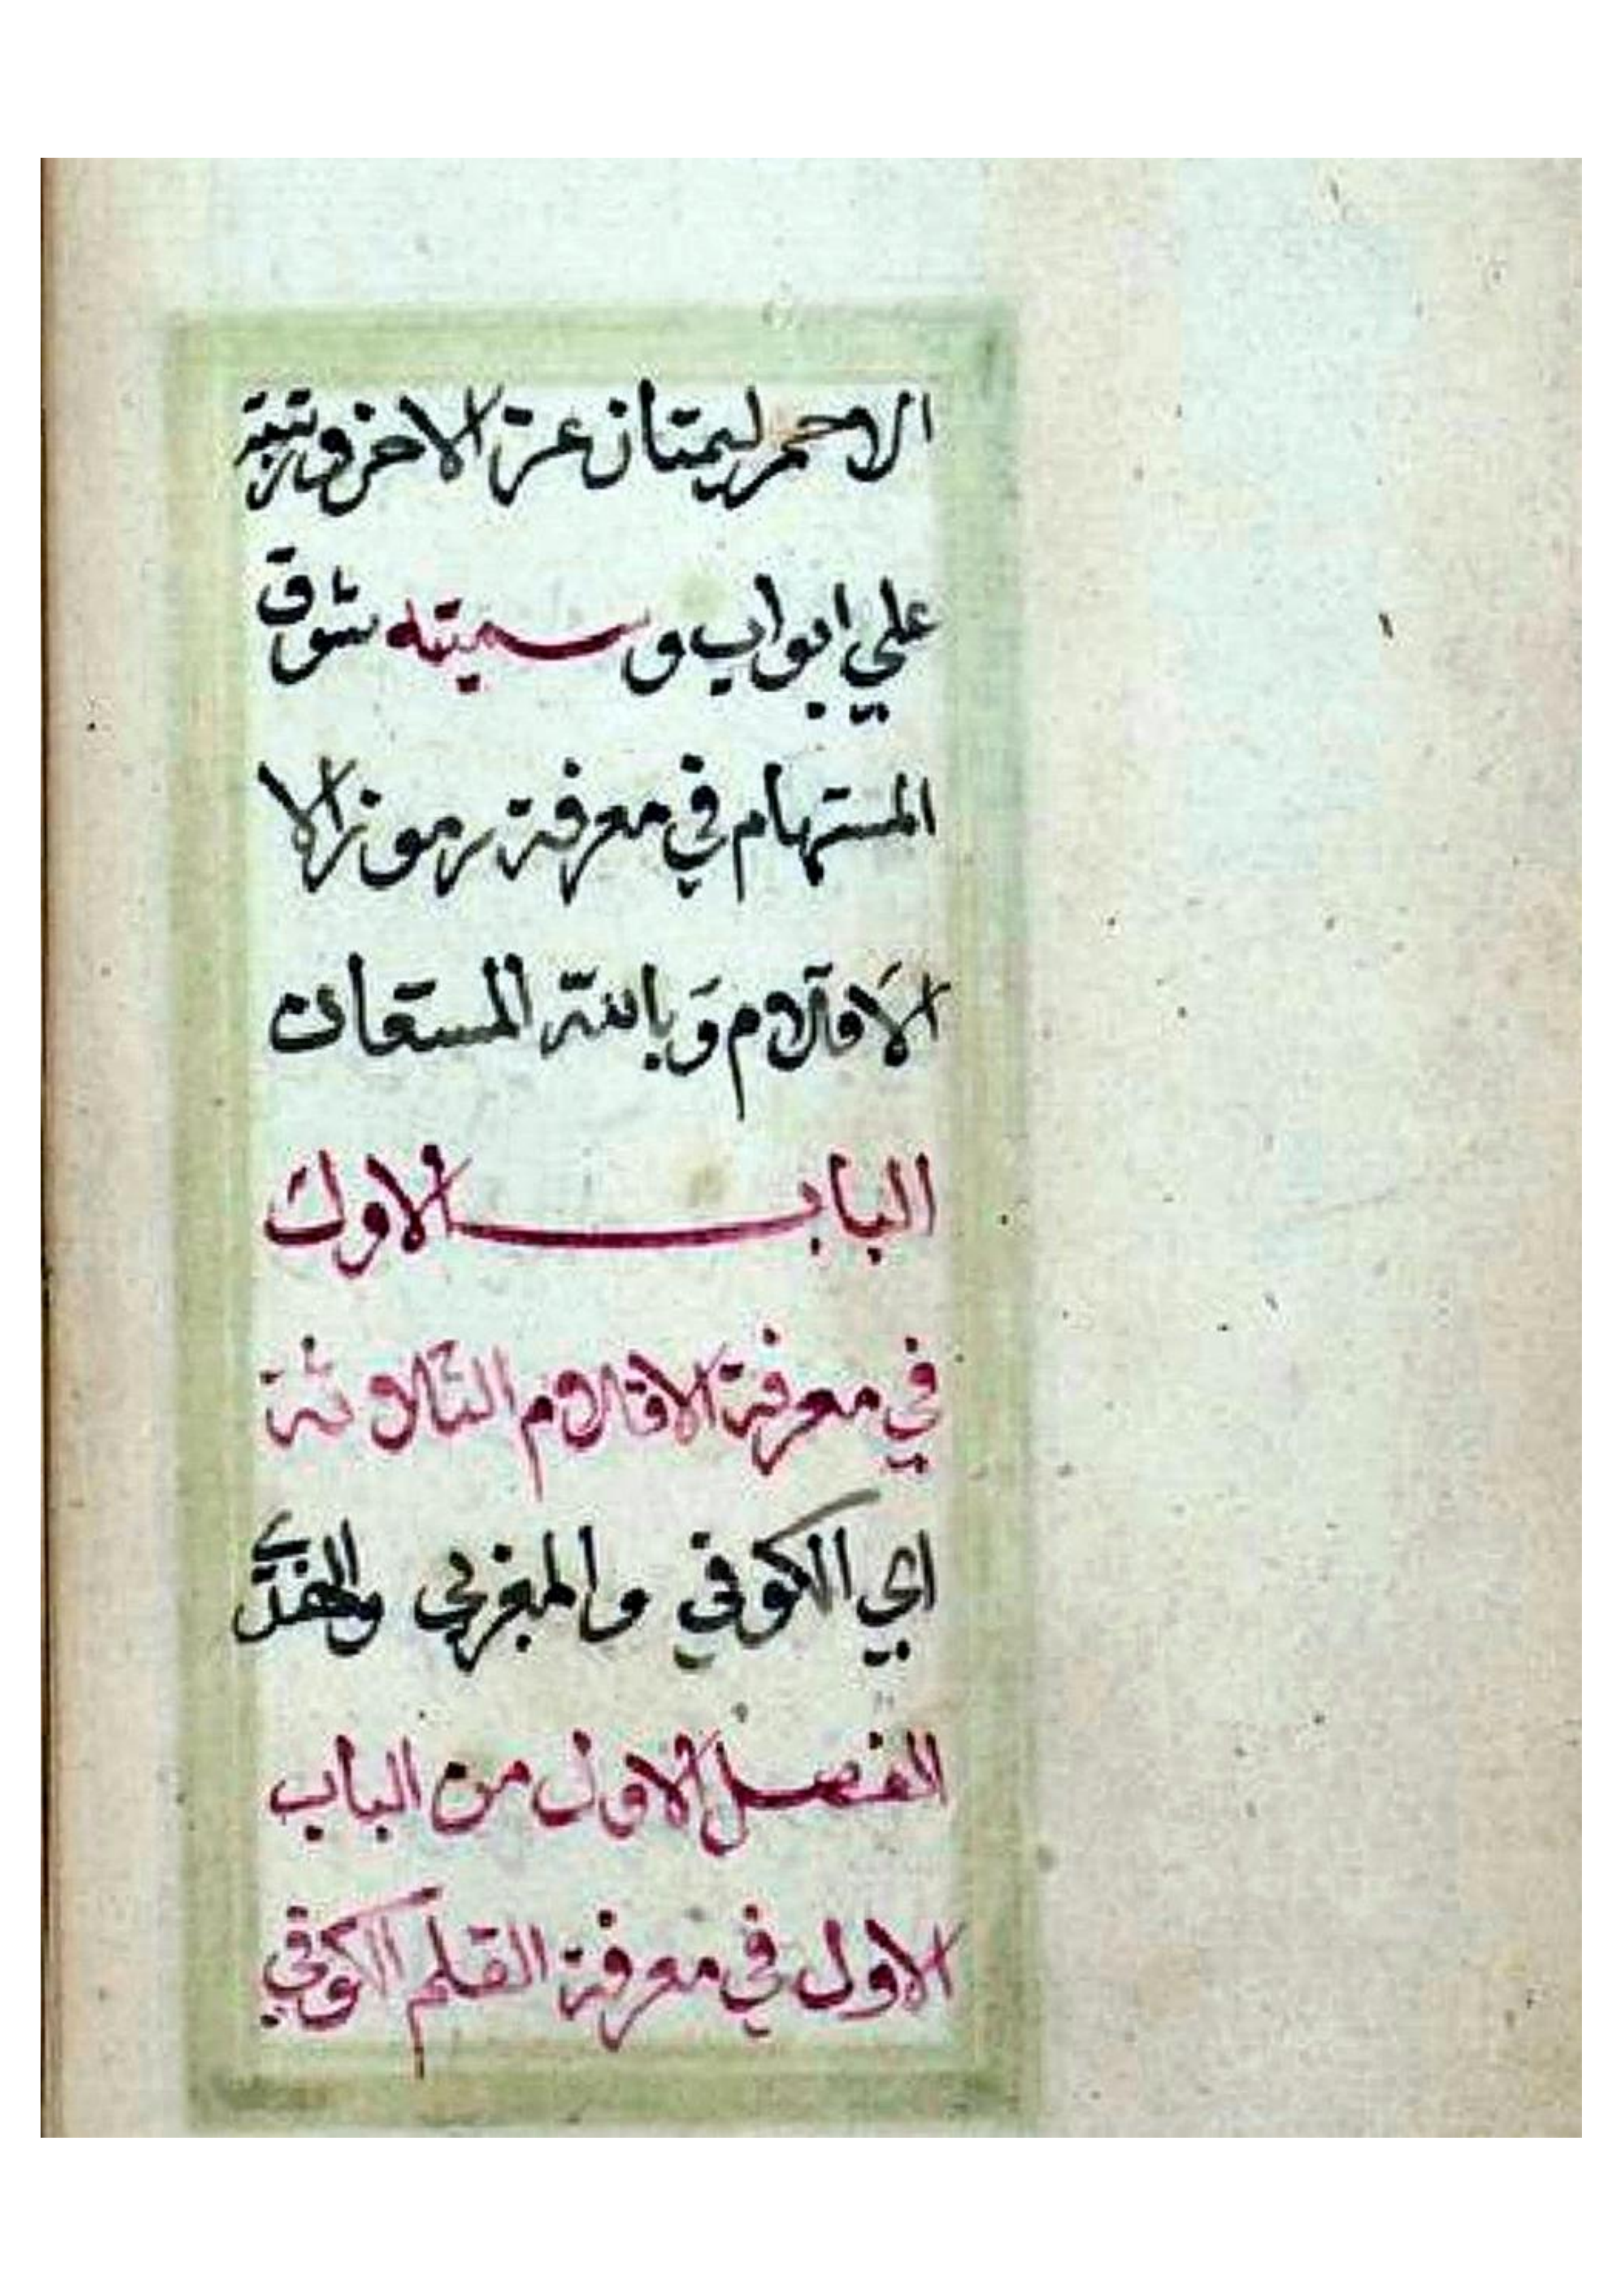 الاحمر ليمتان عن الاخر ورتبته
علي ابواب وسميته شوق
المستهام في معرفة رموز الا
الاقلام وبالله المستعان
الباب الاول
في معرفة الاقلام الثلاثة
اي الكوفي والمغربي والهندي
الفصل الاول من الباب
الاول في معرفة القلم الكوفي